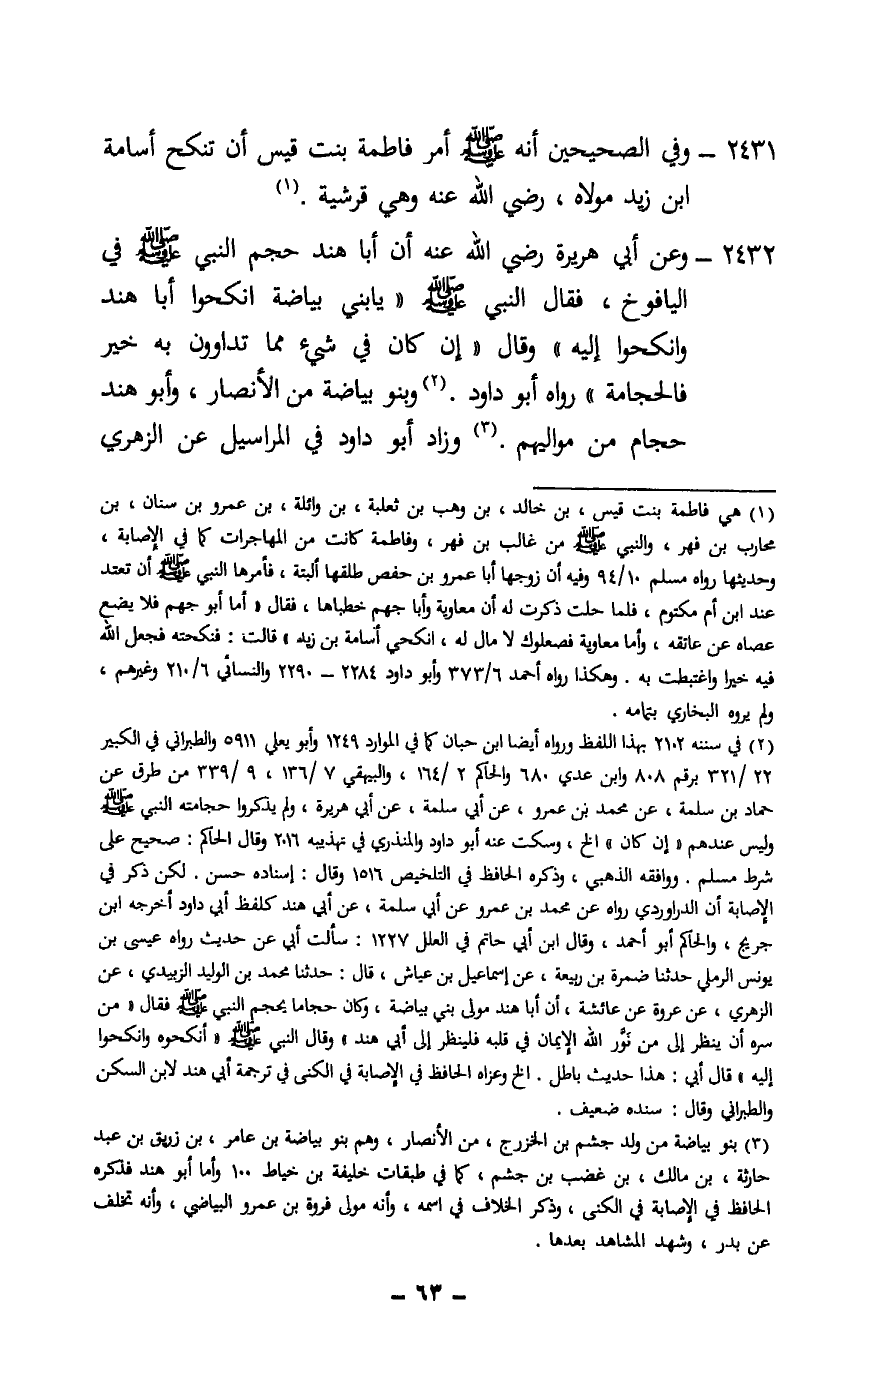 ٢٤٣١ ـ وفي الصحيحين أنه ﷺ أمر فاطمة بنت قيس أن تنكح أسامة
ابن زيد مولاه ، رضي الله عنه وهي قرشية .(١)
٢٤٣٢ ـ وعن أبي هريرة رضي الله عنه أن أبا هند حجم النبي ﷺ في
اليافوخ ، فقال النبي ﷺ « يابني بياضة انكحوا أبا هند
وانكحوا إليه » وقال « إن كان في شيء مما تداوون به خير
فالحجامة » رواه أبو داود .(٢) وبنو بياضة من الأنصار ، وأبو هند
حجام من مواليهم .(٣) وزاد أبو داود في المراسيل عن الزهري
(١) هي فاطمة بنت قيس ، بن خالد ، بن وهب بن ثعلبة ، بن وائلة ، بن عمرو بن سنان ، بن
محارب بن فهر ، والنبي ﷺ من غالب بن فهر ، وفاطمة كانت من المهاجرات كما في الإصابة ،
وحديثها رواه مسلم ٩٤/١٠ وفيه أن زوجها أبا عمرو بن حفص طلقها ألبتة ، فأمرها النبي ﷺ أن تعتد
عند ابن أم مكتوم ، فلما حلت ذكرت له أن معاوية وأبا جهم خطباها ، فقال « أما أبو جهم فلا يضع
عصاه عن عاتقه ، وأما معاوية فصعلوك لا مال له ، انكحي أسامة بن زيد » قالت : فنكحته فجعل الله
فيه خيرا واغتبطت به . وهكذا رواه أحمد ٣٧٣/٦ وأبو داود ٢٢٨٤ – ٢٢٩٠ والنسائي ٢١٠/٦ وغيرهم ،
ولم يروه البخاري بتمامه .
(٢) في سننه ٢١٠٢ بهذا اللفظ ورواه أيضا ابن حبان كما في الموارد ١٢٤٩ وأبو يعلي ٥٩١١ والطبراني في الكبير
٢٢ /٣٢١ برقم ٨٠٨ وابن عدي ٦٨٠ والحاكم ٢ /١٦٤ ، والبيهقي ٧ /١٣٦ ، ٩ /٣٣٩ من طرق عن
حماد بن سلمة ، عن محمد بن عمرو ، عن أبي سلمة ، عن أبي هريرة ، ولم يذكروا حجامته النبي ﷺ
وليس عندهم « إن كان » الخ ، وسكت عنه أبو داود والمنذري في تهذيبه ٢٠١٦ وقال الحاكم : صحيح على
شرط مسلم . ووافقه الذهبي ، وذكره الحافظ في التلخيص ١٥١٦ وقال : إسناده حسن . لكن ذكر في
الإصابة أن الدراوردي رواه عن محمد بن عمرو عن أبي سلمة ، عن أبي هند كلفظ أبي داود أخرجه ابن
جريج ، والحاكم أبو أحمد ، وقال ابن أبي حاتم في العلل ١٢٢٧ : سألت أبي عن حديث رواه عيسى بن
يونس الرملي حدثنا ضمرة بن ربيعة ، عن إسماعيل بن عياش ، قال : حدثنا محمد بن الوليد الزبيدي ، عن
الزهري ، عن عروة عن عائشة ، أن أبا هند مولى بني بياضة ، وكان حجاما يحجم النبي ﷺ فقال « من
سره أن ينظر إلى من نَوَّر الله الإيمان في قلبه فلينظر إلى أبي هند » وقال النبي ﷺ « أنكحوه وانكحوا
إليه » قال أبي : هذا حديث باطل . الخ وعزاه الحافظ في الإصابة في الكنى في ترجمة أبي هند لابن السكن
والطبراني وقال : سنده ضعيف .
(٣) بنو بياضة من ولد جشم بن الخزرج ، من الأنصار ، وهم بنو بياضة بن عامر ، بن زريق بن عبد
حارثة ، بن مالك ، بن غضب بن جشم ، كما في طبقات خليفة بن خياط ١٠٠ وأما أبو هند فذكره
الحافظ في الإصابة في الكنى ، وذكر الخلاف في اسمه ، وأنه مولى فروة بن عمرو البياضي ، وأنه تخلف
عن بدر ، وشهد المشاهد بعدها .
ـ ٦٣ ـ